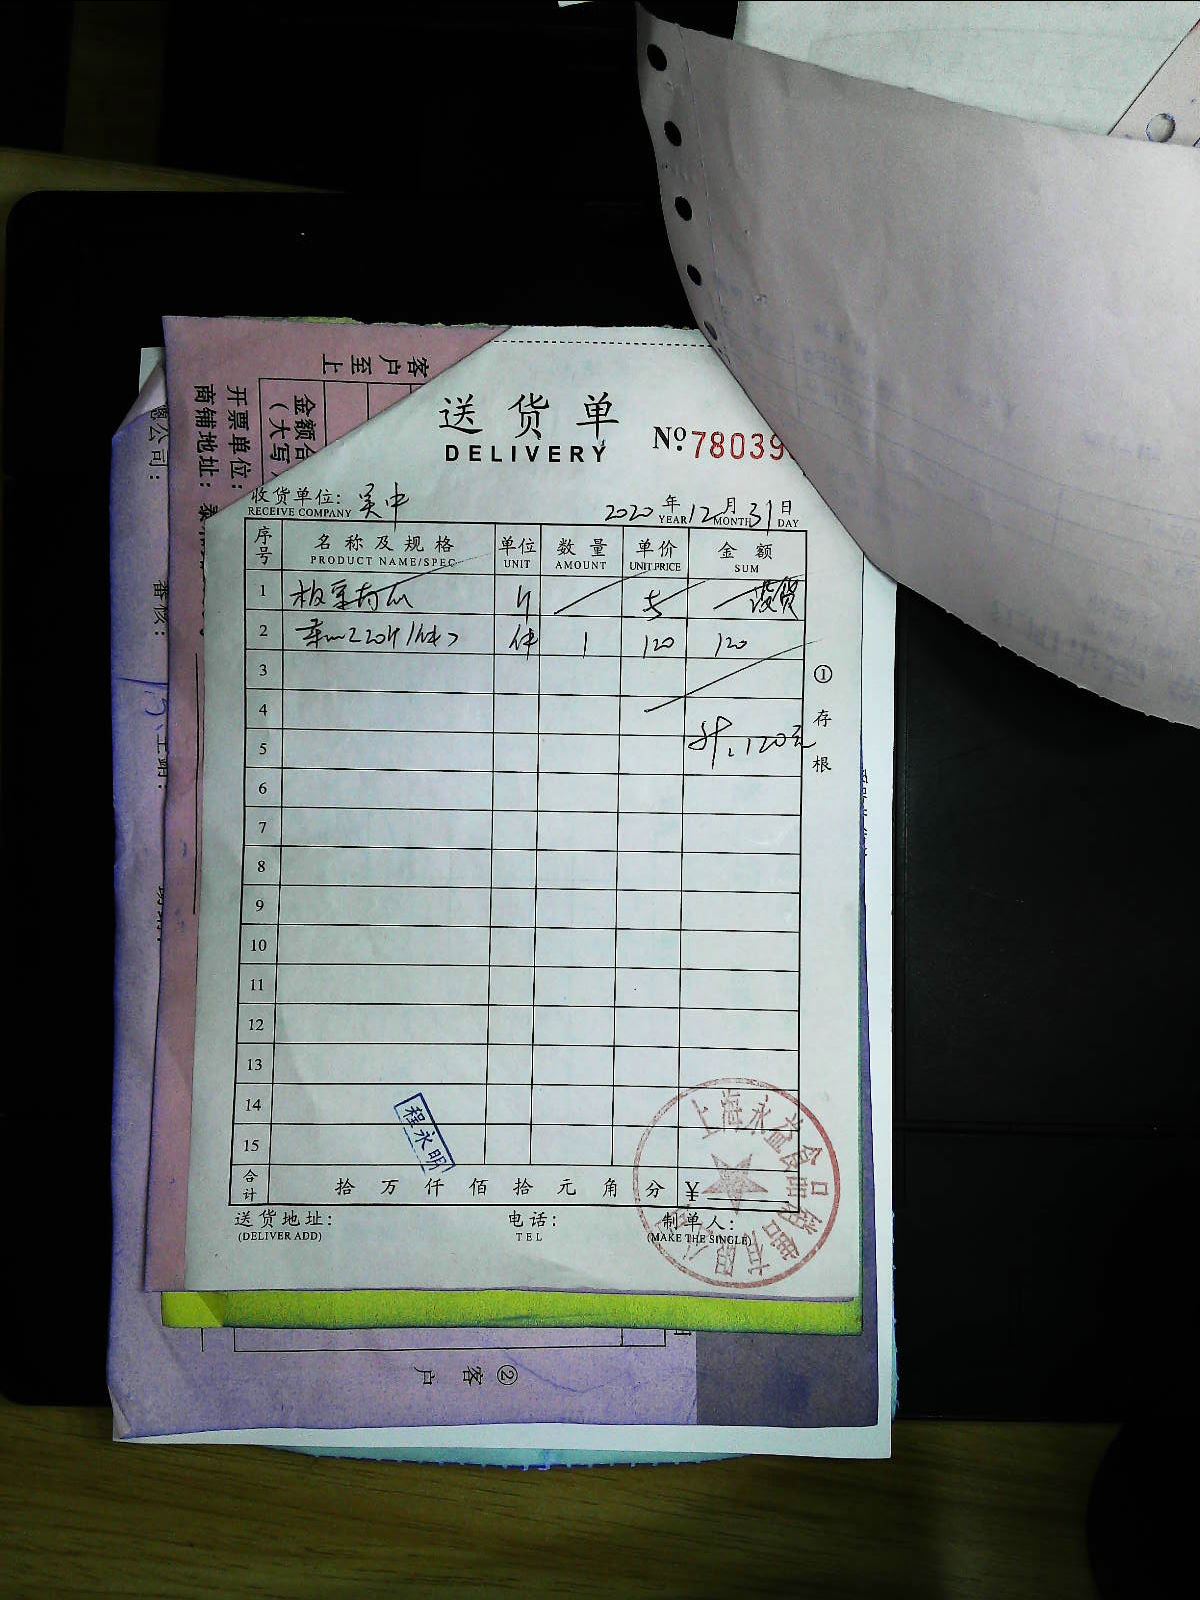 客户至上
开票单位:
商铺地址:
金额合
(大写)
总公司:
审核:
送货单
DELIVERY
№78039
收货单位: 吴中
RECEIVE COMPANY
2020年12月31日
YEAR MONTH DAY
序号 名称及规格 单位 数量 单价 金额
PRODUCT NAME/SPEC UNIT AMOUNT UNIT PRICE SUM
1 5 没货
2 件 1 120 120
3
4
5 计:120元
6
7
8
9
10
11
12
13
14
15
①存根
程永明
合计 拾万仟佰拾元角分 ¥
送货地址: 电话: 制单人:
(DELIVER ADD) TEL (MAKE THE SINGLE)
上海永益食品销售有限公司
②客户